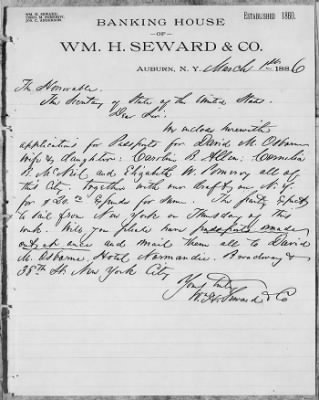 WM. H. SEWARD.
JNO. C. ANDERSON.
ESTABLISHED 1860.
BANKING HOUSE
—OF—
WM. H. SEWARD & CO.
AUBURN, N. Y. March 1st 1886
The Honorable
The Secretary of State of the United States
Dear Sir:
We enclose herewith
applications for Passports for David M. Osborne
Wife & daughter: Caroline B. Allen: Cornelia
B. McNeil and Elizabeth W. Pomeroy all of
this City. Together with our draft on N. Y.
for to pay for same. The party expects
to sail from New York on Thursday of this
week. Will you please have passports made
out at once and mail them all to David
M. Osborne, Hotel Normandie. Broadway &
38th St. New York City
Yours Truly
W. H. Seward & Co